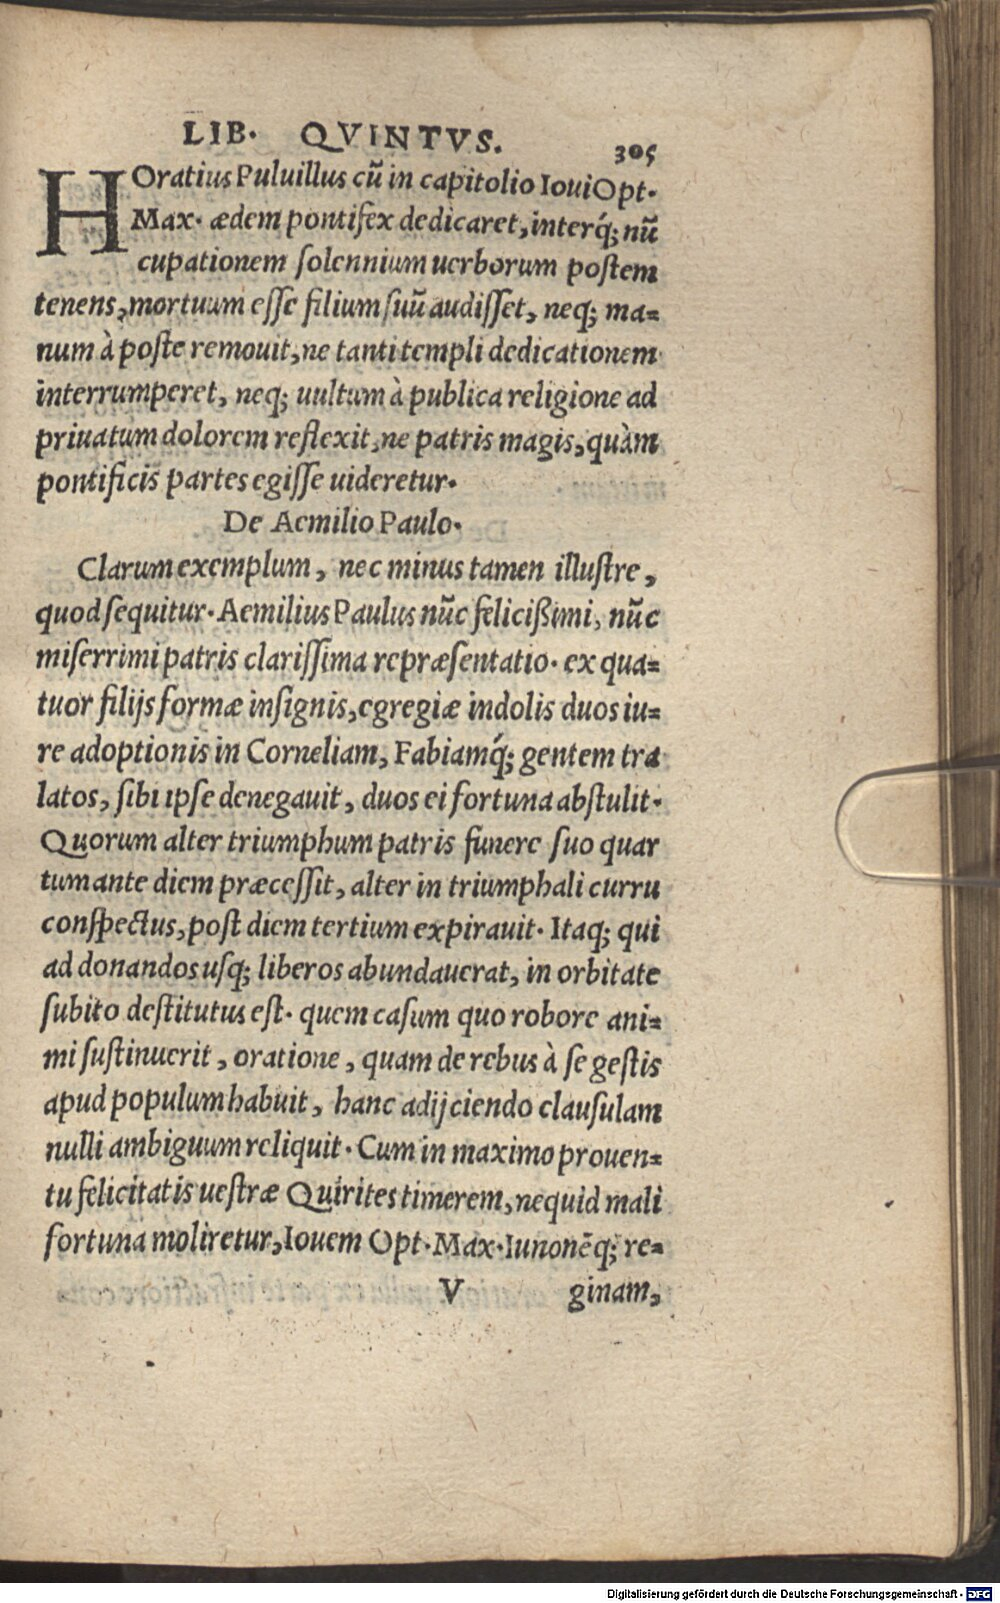 LIB. QVINTVS. 305
HOratius Puluillus cũ in capitolio Ioui Opt.
Max. ædem pontifex dedicaret, interq́; nũ
cupationem solennium uerborum postem
tenens, mortuum esse filium suũ audisset, neq; ma=
num à poste remouit, ne tanti templi dedicationem
interrumperet, neq; uultum à publica religione ad
priuatum dolorem reflexit, ne patris magis, quàm
pontificis partes egisse uideretur.
De Aemilio Paulo.
Clarum exemplum, nec minus tamen illustre,
quod sequitur. Aemilius Paulus nũc felicißimi, nũc
miserrimi patris clarissima repræsentatio. ex qua=
tuor filijs formæ insignis, egregiæ indolis duos iu=
re adoptionis in Corneliam, Fabiamq́; gentem tra
latos, sibi ipse denegauit, duos ei fortuna abstulit.
Quorum alter triumphum patris funere suo quar
tum ante diem præcessit, alter in triumphali curru
conspectus, post diem tertium expirauit. Itaq; qui
ad donandos usq; liberos abundauerat, in orbitate
subito destitutus est. quem casum quo robore ani=
mi sustinuerit, oratione, quam de rebus à se gestis
apud populum habuit, hanc adijciendo clausulam
nulli ambiguum reliquit. Cum in maximo prouen=
tu felicitatis uestræ Quirites timerem, nequid mali
fortuna moliretur, Iouem Opt. Max. Iunonẽq; re=
V ginam,
Digitalisierung gefördert durch die Deutsche Forschungsgemeinschaft - DFG